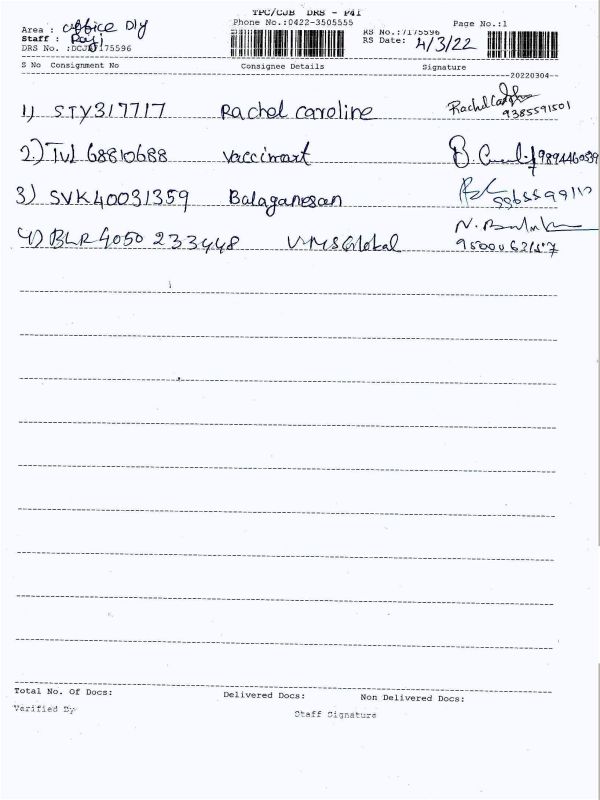 TPC/CJB DRS - P4I
Phone No.:0422-3505555 Page No.:1
Area : office Dly
Staff : Raji RS No.:7175596
DRS No. :DCJB7175596 RS Date: 4/3/22
S No Consignment No Consignee Details Signature
20220304
1) STY317717 Rachel caroline Rachel Caroline
9385591501
2) TVL 68810688 Vaccimart 9894460539
3) SVK40031359 Balaganesan
4) BLR4050 233448 VMS Global
Total No. Of Docs: Delivered Docs: Non Delivered Docs:
Verified By Staff Signature